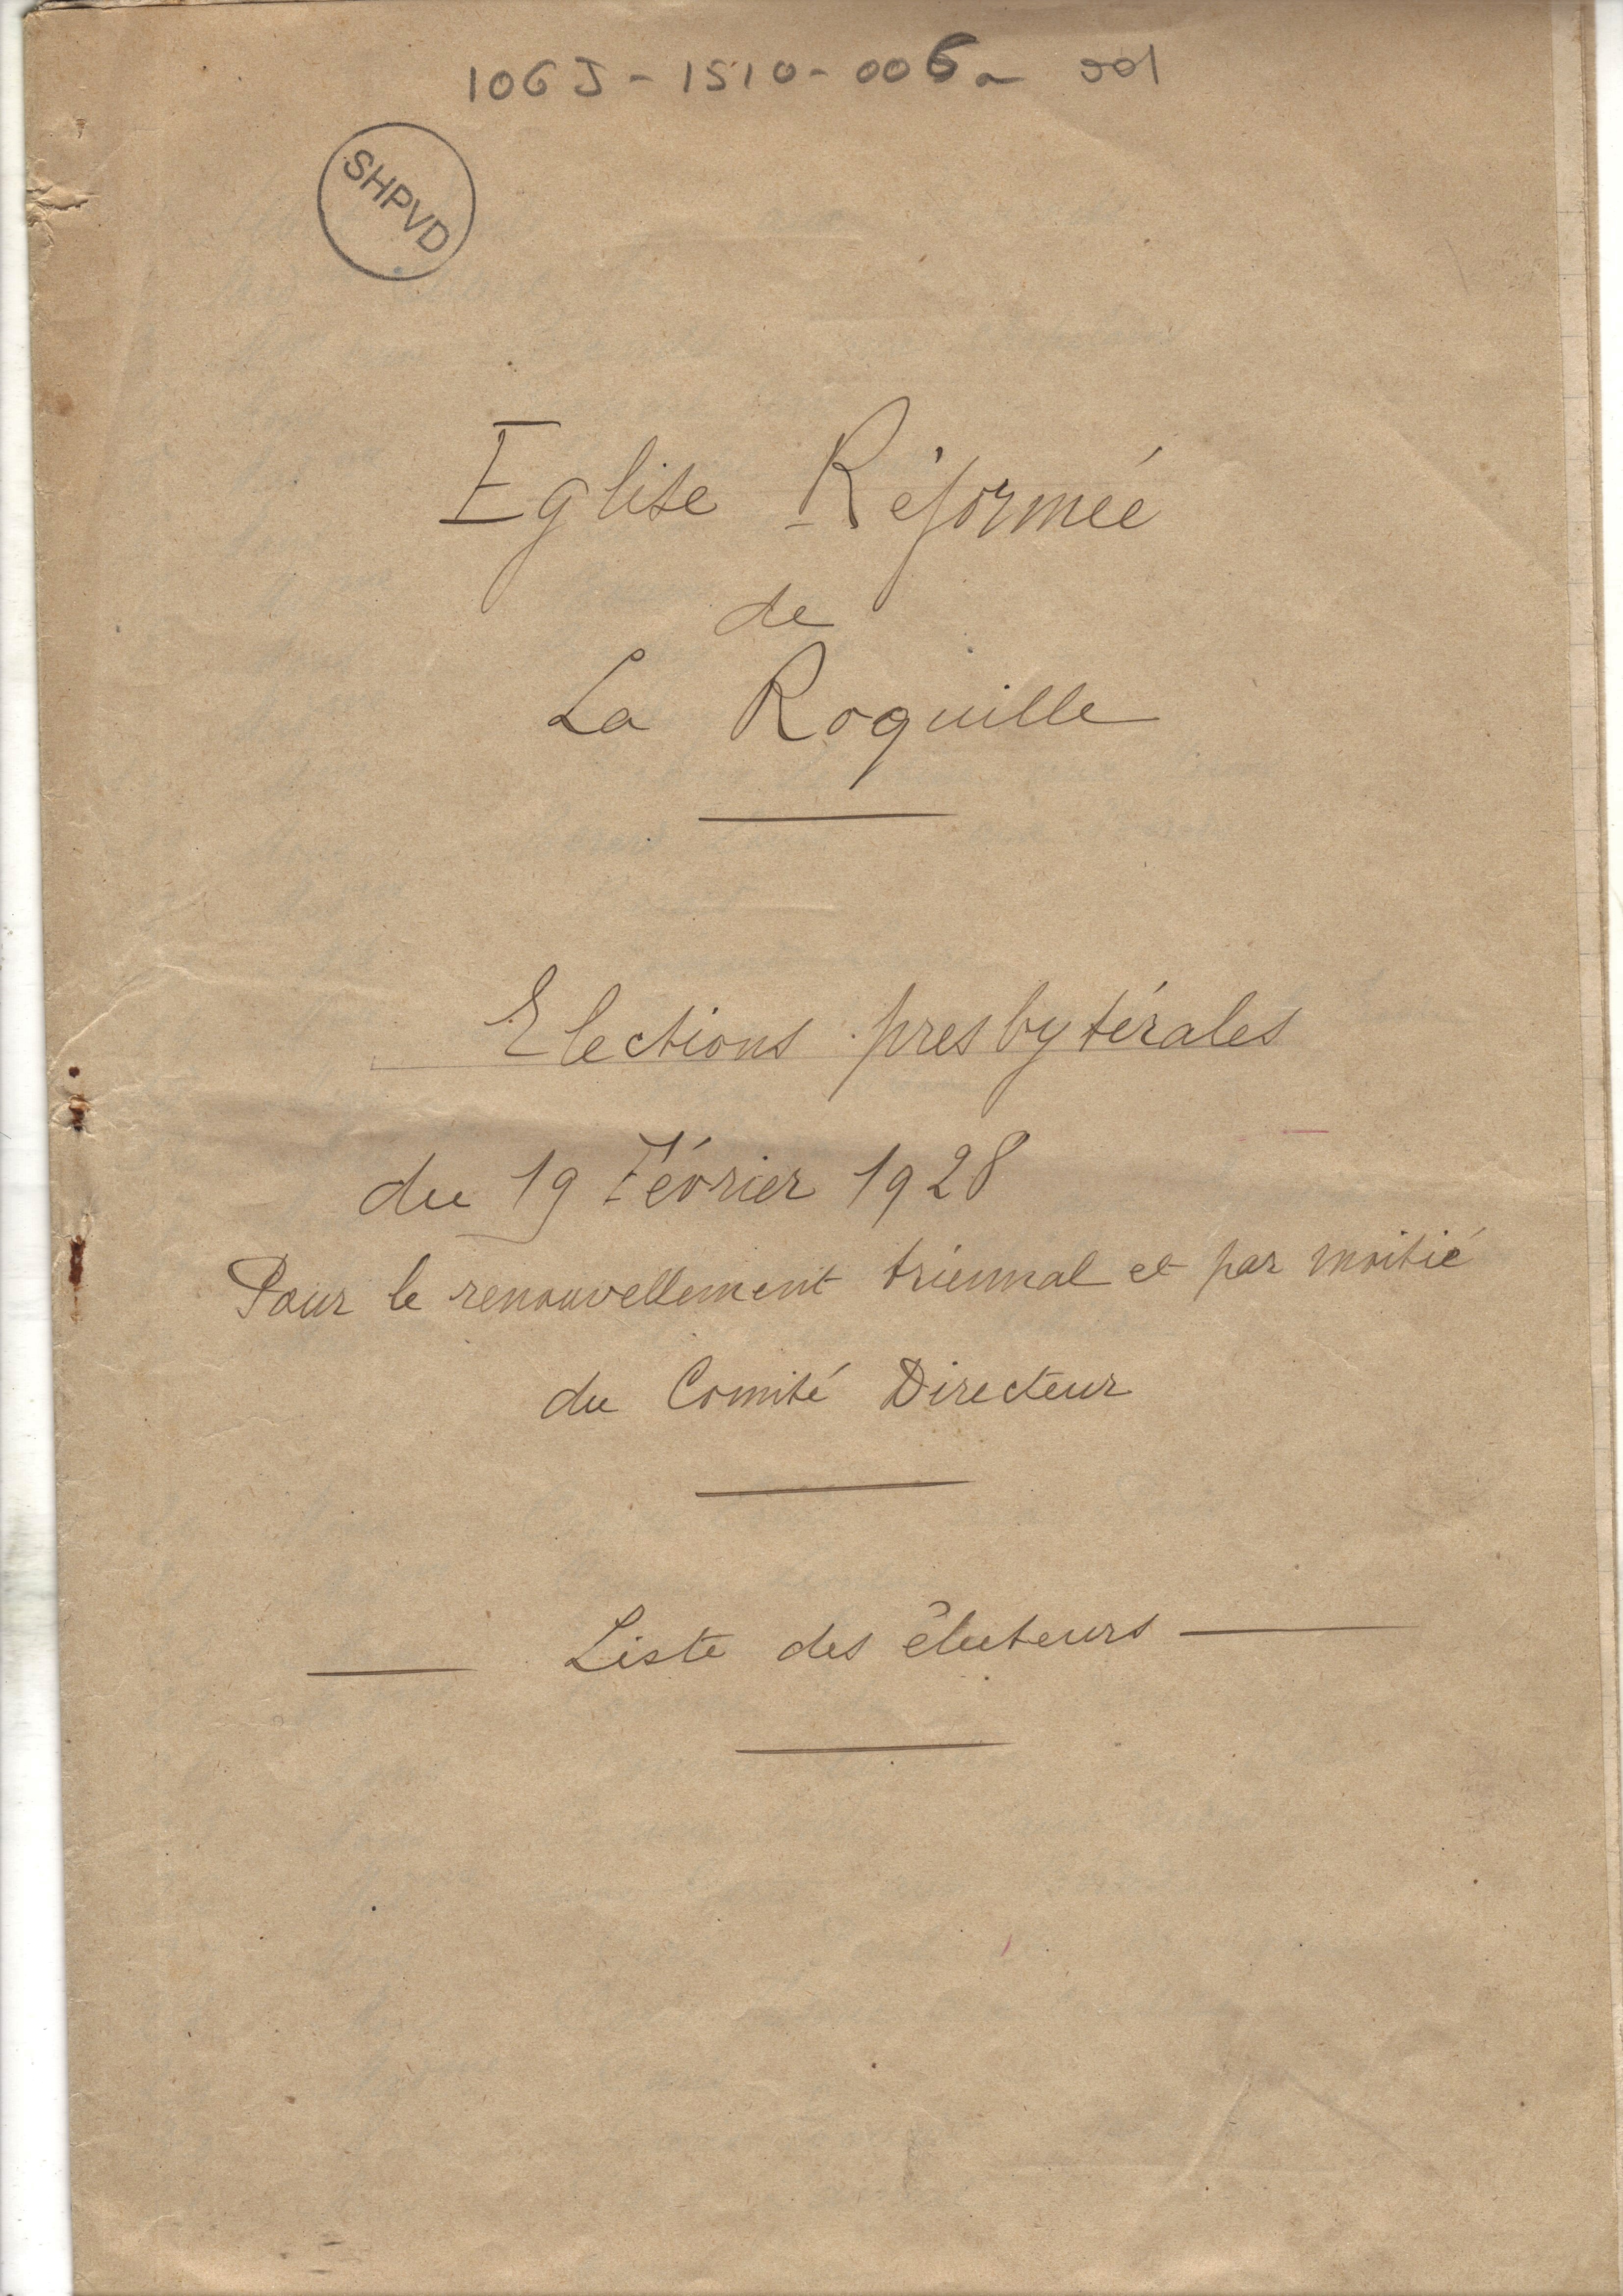 106 J - 1510 - 006a 001
SHPVD
Eglise Réformée
de
La Roquille
Elections presbytérales
du 19 Février 1928
Pour le renouvellement triennal et par moitié
du Comité Directeur
Liste des électeurs